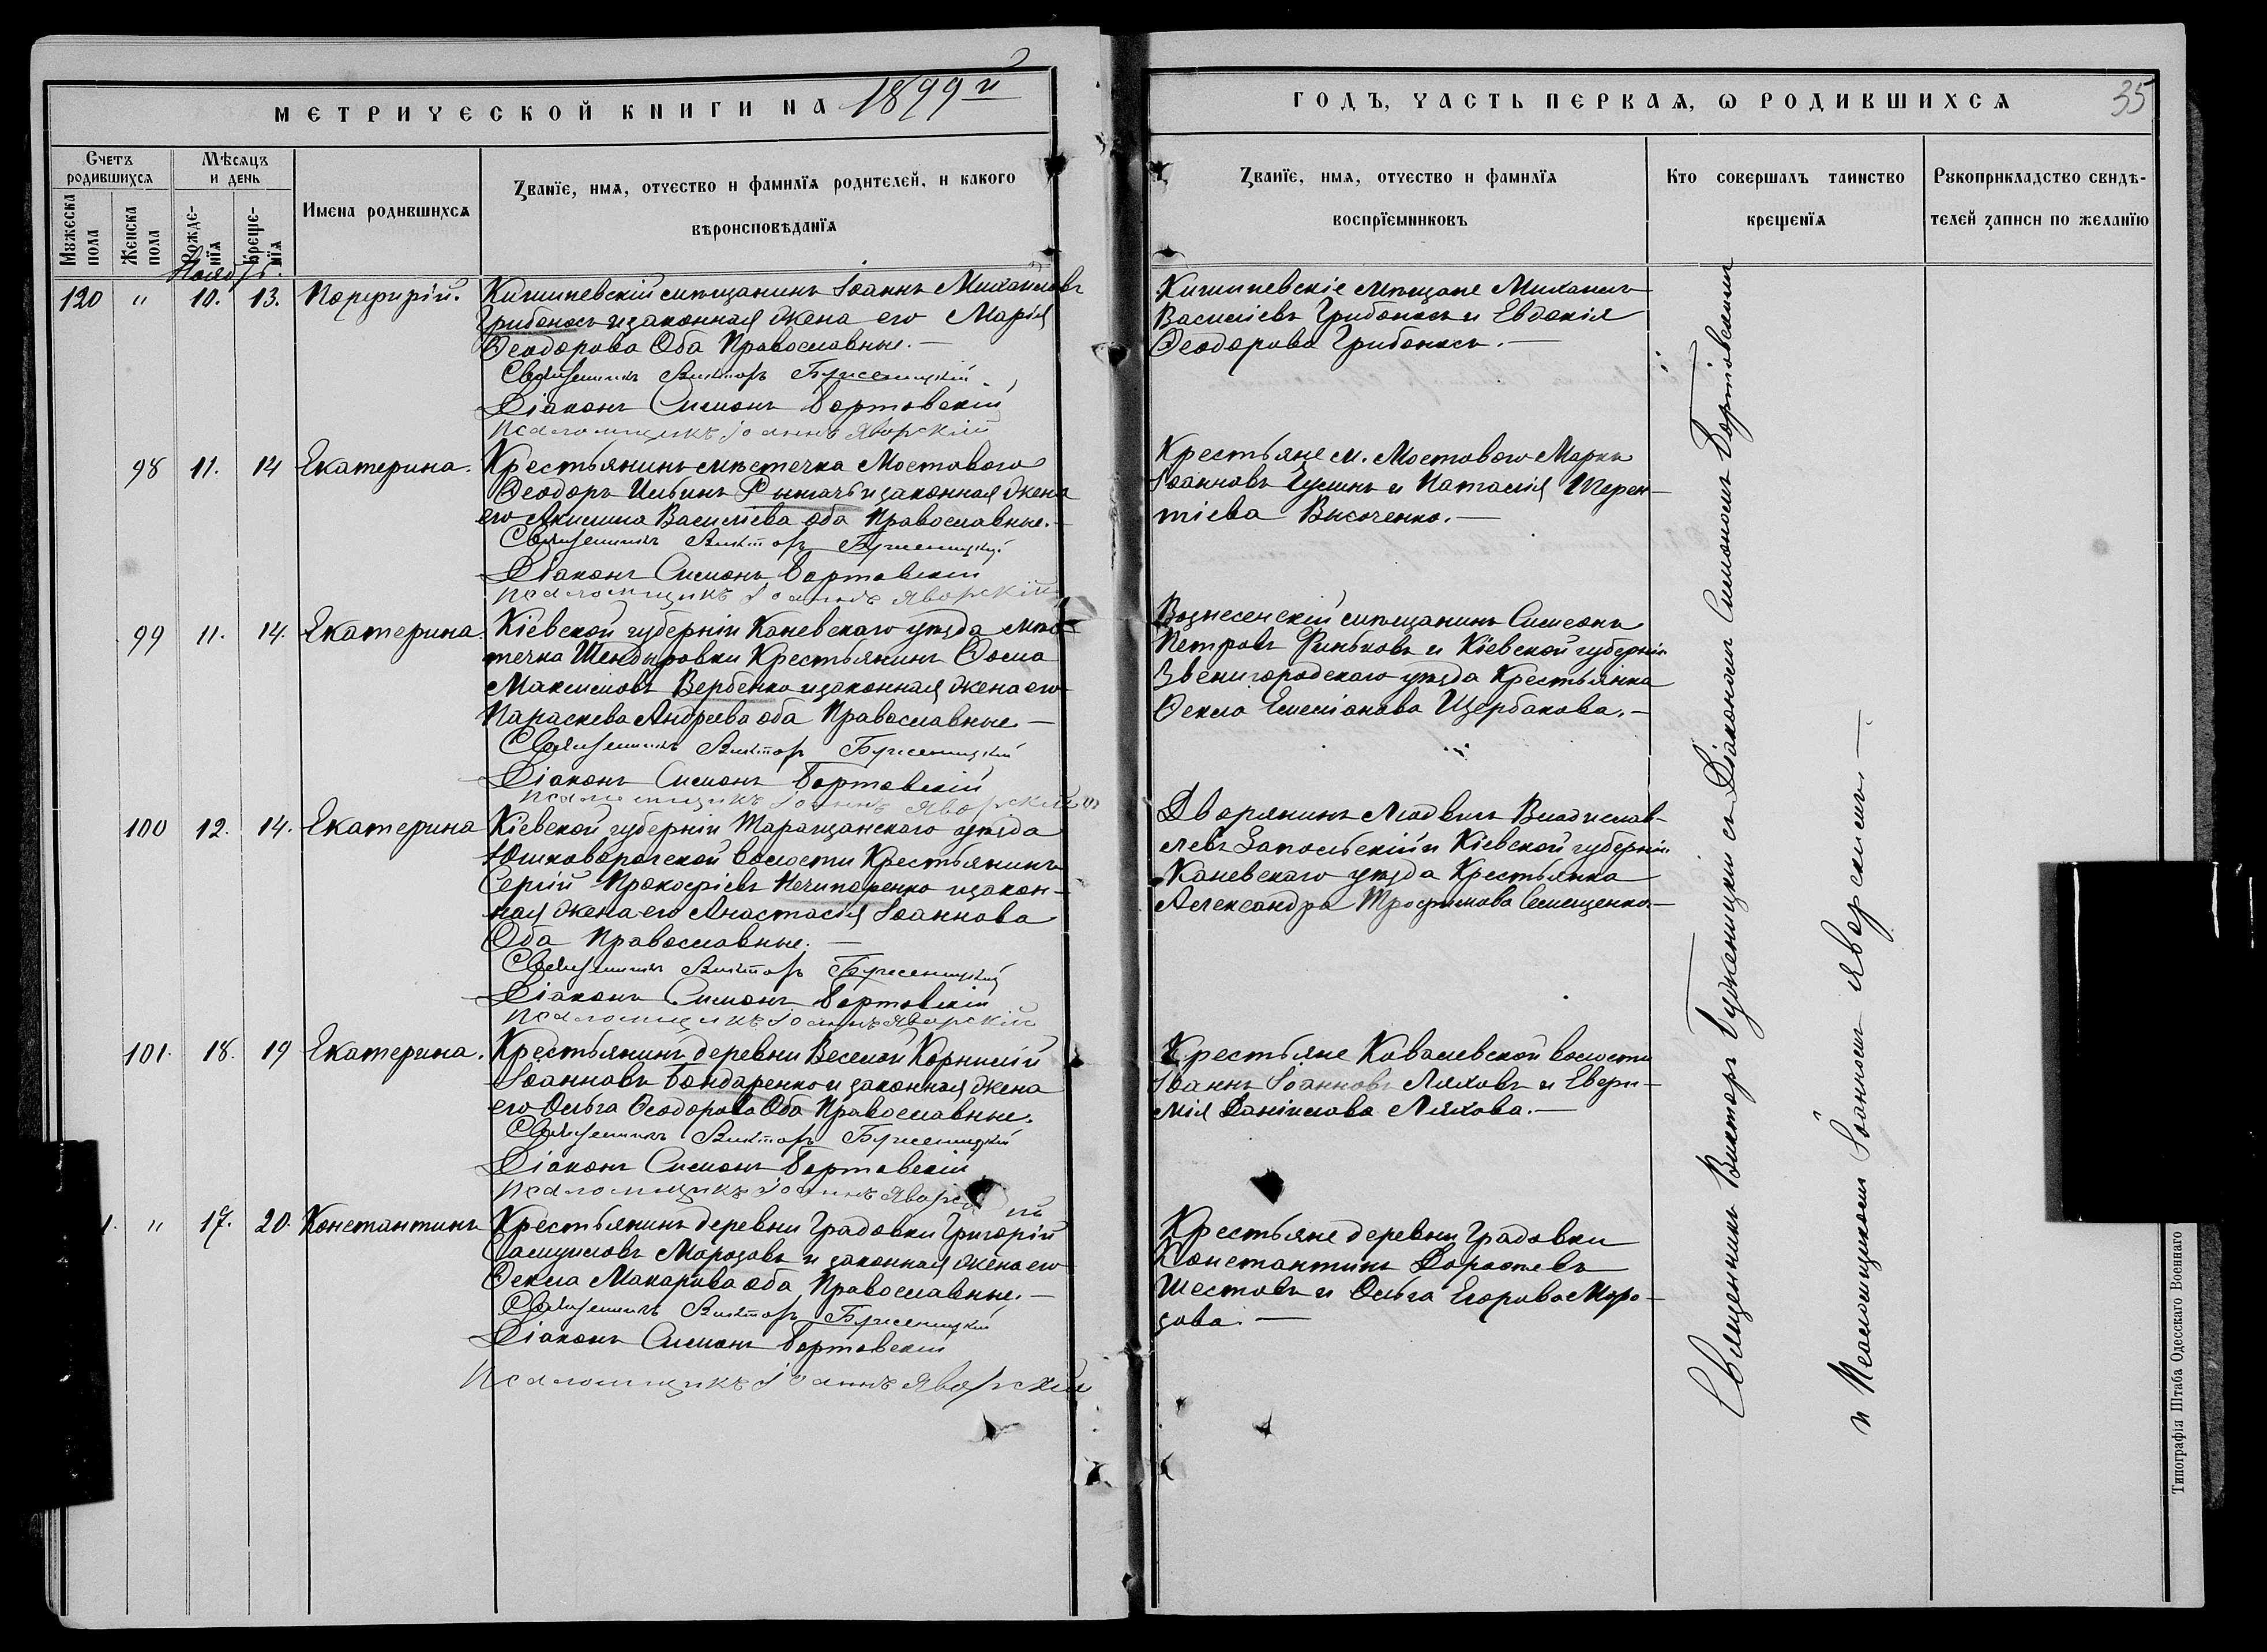 МЕТРИЧЕСКОЙ КНИГИ НА 1899й
ГОДЪ, ЧАСТЬ ПЕРВАЯ, Ѡ РОДИВШИХСЯ
35
Счетъ родившихся
Мѣсяцъ и день
Мужеска пола
Женска пола
Рожденїя
Крещенїя
Имена родившихся
Званїе, имя, отчество и фамилїя родителей, и какого
вѣроисповѣданїя
Званїе, имя, отчество и фамилїя
воспрїемниковъ
Кто совершалъ таинство
крещенїя
Рукоприкладство свидѣ-
телей записи по желанїю
Нояб.
120 " 10. 13. Порфирій.
Кишиневскій мѣщанинъ Іоаннъ Михайловъ
Грибоносъ и законная жена его Марія
Ѳеодорова Оба Православные.—
Священникъ Викторъ Буженицкій
Діаконъ Симонъ Бортовскій
Псаломщикъ Іоаннъ Яворскій
Кишиневскіе мѣщане Михаилъ
Василіевъ Грибоносъ и Евдокія
Ѳеодорова Грибоносъ.—
98 11. 14 Екатерина.
Крестьянинъ мѣстечка Мостового
Ѳеодоръ Ильинъ и законная жена
его Акилина Василіева оба Православные.—
Священникъ Викторъ Буженицкій
Діаконъ Симонъ Бортовскій
Псаломщикъ Іоаннъ Яворскій
Крестьяне м. Мостового Маркъ
Іоанновъ и Наталія Терен-
тіева Высоченко.—
99 11. 14. Екатерина.
Кіевской губерніи Каневскаго уѣзда мѣс-
течка Шендыровки Крестьянинъ Ѳома
Максимовъ Вербенко и законная жена его
Параскева Андреева оба Православные.—
Священникъ Викторъ Буженицкій
Діаконъ Симонъ Бортовскій
Псаломщикъ Іоаннъ Яворскій
Вознесенскій мѣщанинъ Симеонъ
Петровъ и Кіевской губерніи
Звенигородскаго уѣзда Крестьянка
Ѳекла Емеліанова Щербакова.—
100 12. 14. Екатерина
Кіевской губерніи Таращанскаго уѣзда
Юшковорогской волости Крестьянинъ
Сергій Прокофіевъ Нечипоренко и закон-
ная жена его Анастасія Іоаннова
Оба Православные.—
Священникъ Викторъ Буженицкій
Діаконъ Симонъ Бортовскій
Псаломщикъ Іоаннъ Яворскій
Дворянинъ Людвигъ Владислав-
левъ Запольскій и Кіевской губерніи
Каневскаго уѣзда Крестьянка
Александра Трофимова—
101. 18. 19 Екатерина.
Крестьянинъ деревни Веселой Корнилій
Іоанновъ Бондаренко и законная жена
его Ольга Ѳеодорова Оба Православные.
Священникъ Викторъ Буженицкій
Діаконъ Симонъ Бортовскій
Псаломщикъ Іоаннъ Яворскій
Крестьяне Ковалевской волости
Іоаннъ Іоанновъ Ляховъ и Евфи-
мія Даніилова Ляхова.—
1. " 19. 20. Константинъ
Крестьянинъ деревни Градовки Григорій
Самуиловъ Морозовъ и законная жена его
Ѳекла Макарова оба Православные.—
Священникъ Викторъ Буженицкій
Діаконъ Симонъ Бортовскій
Псаломщикъ Іоаннъ Яворскій
Крестьяне деревни Градовки
Константинъ Дороѳеевъ
Шестовъ и Ольга Егорова Моро-
зова.—
Священникъ Викторъ Буженицкій съ Діакономъ Симономъ Бортовскимъ
и Псаломщикомъ Іоанномъ Яворскимъ—
Типографія Штаба Одесскаго Военнаго